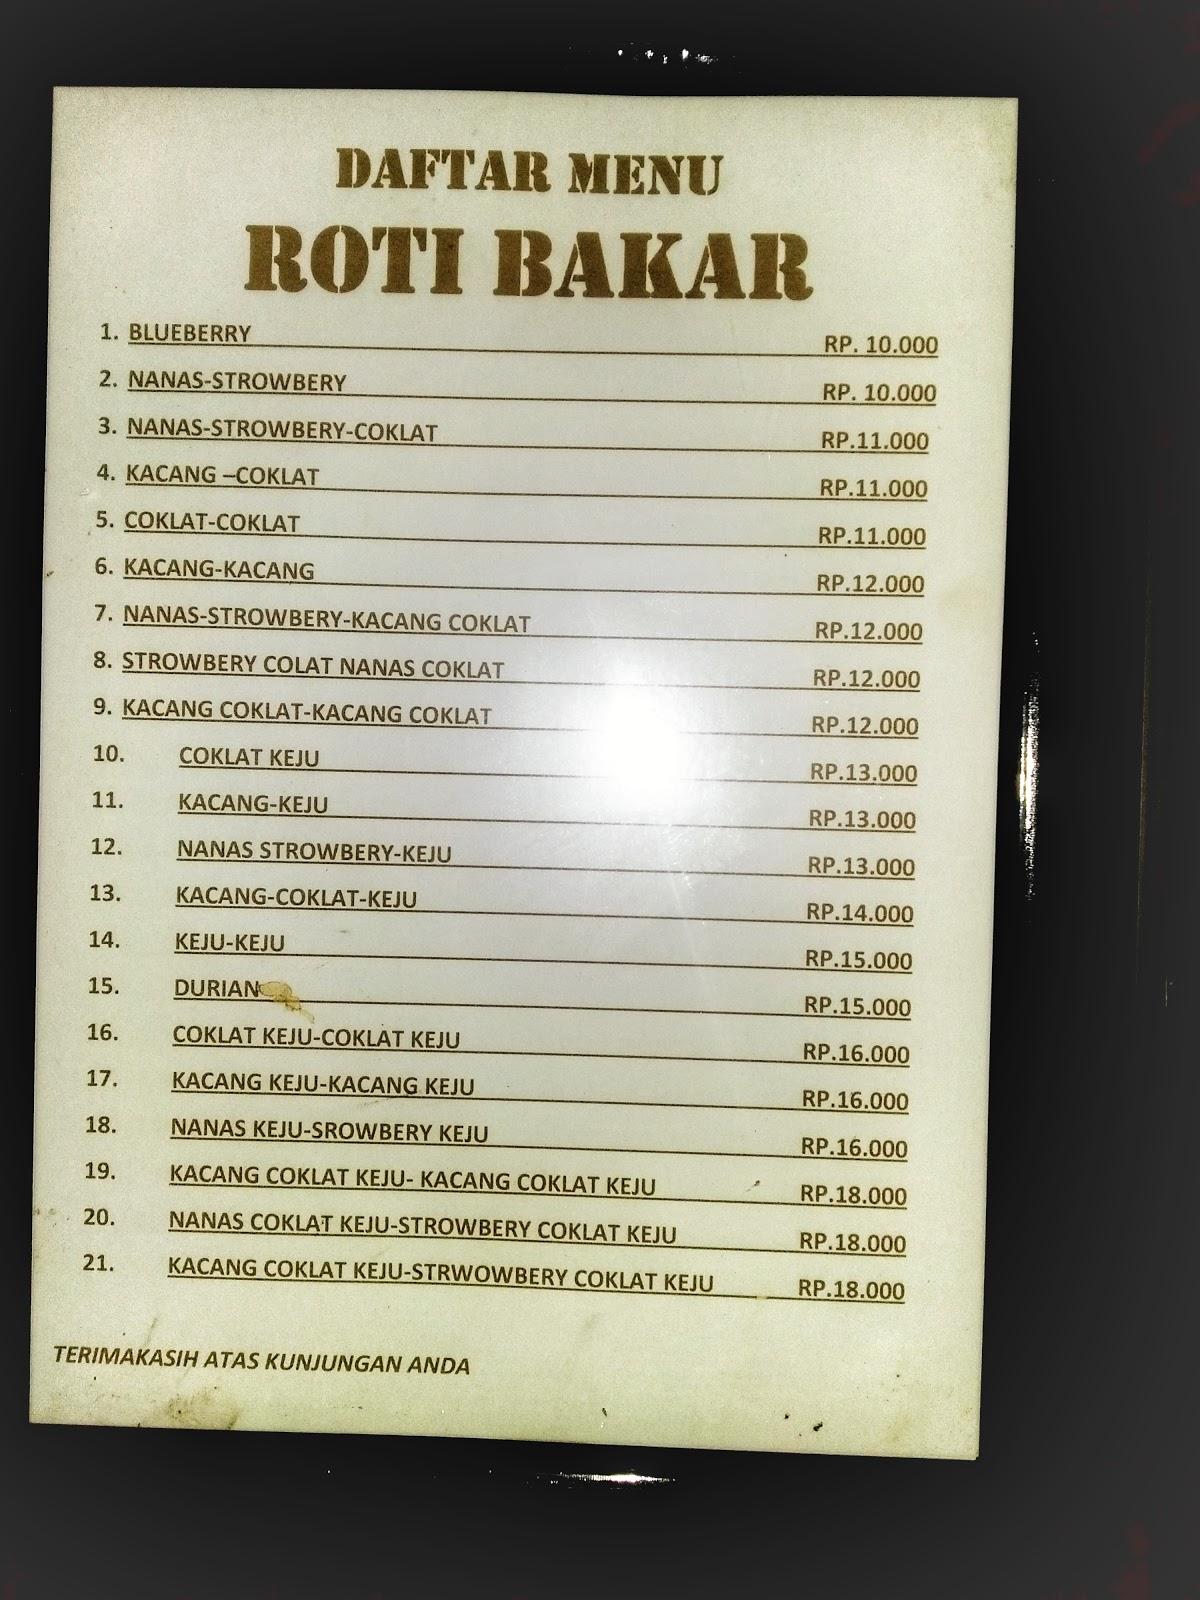 DAFTAR MENU
ROTI BAKAR
1. BLUEBERRY RP. 10.000
2. NANAS-STROWBERY RP. 10.000
3. NANAS-STROWBERY-COKLAT RP.11.000
4. KACANG –COKLAT RP.11.000
5. COKLAT-COKLAT RP.11.000
6. KACANG-KACANG RP.12.000
7. NANAS-STROWBERY-KACANG COKLAT RP.12.000
8. STROWBERY COLAT NANAS COKLAT RP.12.000
9. KACANG COKLAT-KACANG COKLAT RP.12.000
10. COKLAT KEJU RP.13.000
11. KACANG-KEJU RP.13.000
12. NANAS STROWBERY-KEJU RP.13.000
13. KACANG-COKLAT-KEJU RP.14.000
14. KEJU-KEJU RP.15.000
15. DURIAN RP.15.000
16. COKLAT KEJU-COKLAT KEJU RP.16.000
17. KACANG KEJU-KACANG KEJU RP.16.000
18. NANAS KEJU-SROWBERY KEJU RP.16.000
19. KACANG COKLAT KEJU- KACANG COKLAT KEJU RP.18.000
20. NANAS COKLAT KEJU-STROWBERY COKLAT KEJU RP.18.000
21. KACANG COKLAT KEJU-STRWOWBERY COKLAT KEJU RP.18.000
TERIMAKASIH ATAS KUNJUNGAN ANDA